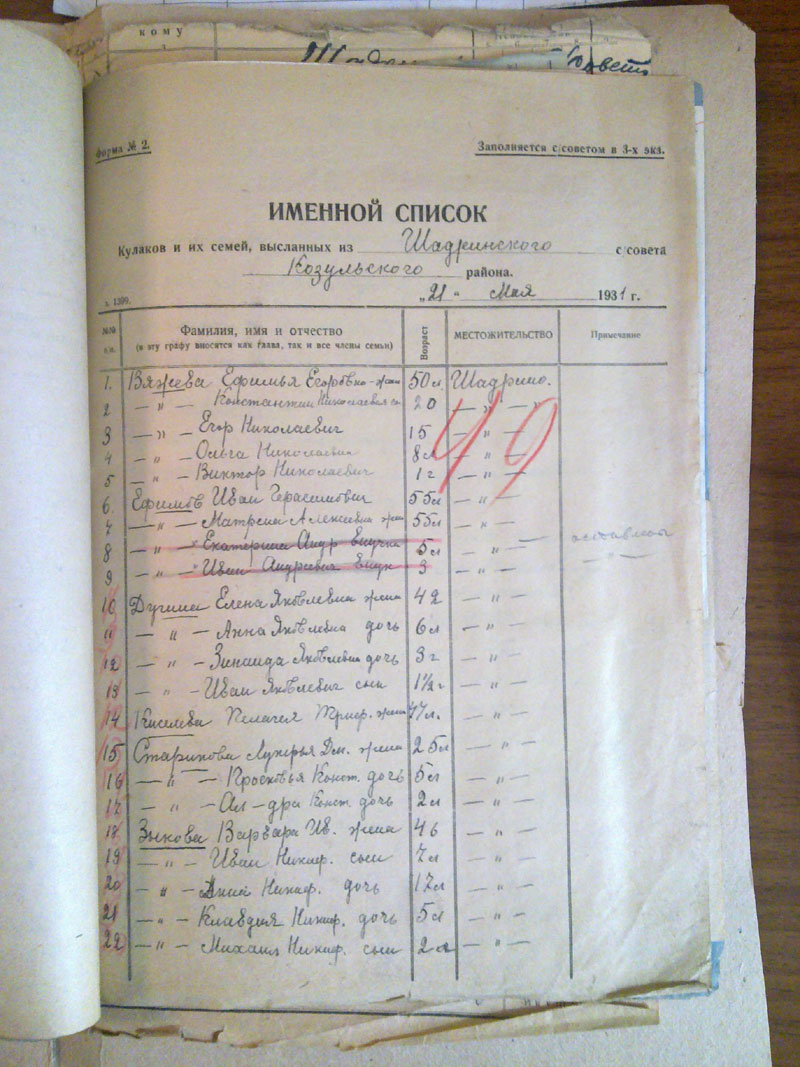 кому
Форма № 2.
Заполняется с/советом в 3-х экз.
ИМЕННОЙ СПИСОК
Кулаков и их семей, высланных из Шадринского с/совета
Козульского района.
„21" Мая 1931 г.
з. 1399.
№№ п.п. Фамилия, имя и отчество (в эту графу вносятся как глава, так и все члены семьи) Возраст МЕСТОЖИТЕЛЬСТВО Примечание
49
1. Вяжева Ефимья Егоровна-жена 50 л. Шадрино.
2 — „ — Константин Николаевич 20 — „ — „
3 — „ — Егор Николаевич 15 — „ —
4 — „ — Ольга Николаевна 8 л — „ —
5 — „ — Виктор Николаевич 1 г — „ —
6. Ефимов Иван Герасимович 55л — „ —
7 — „ — Матрена Алексеевна жена 55л — „ —
8 — „ — Екатерина Андр внучка 5л — „ — оставлены
9 — „ — Иван Андреевич внук 3 — „ — — „ —
10 Дугина Елена Яковлевна жена 42 — „ —
11 — „ — Анна Яковлевна дочь 6л — „ —
12 — „ — Зинаида Яковлевна дочь 3г — „ —
13 — „ — Иван Яковлевич сын 1½ г — „ —
14 Киселева Пелагея Триф. жена 77л. — „ —
15 Старикова Лукерья Дм. жена 25л — „ —
16 — „ — Просковья Конст. дочь 5л — „ —
17 — „ — Ал-дра Конст. дочь 2л — „ —
18 Зыкова Варвара Ив. жена 46 — „ —
19 — „ — Иван Никиф. сын 7л — „ —
20 — „ — Анна Никиф. дочь 17л — „ —
21 — „ — Клавдия Никиф. дочь 5л — „ —
22 — „ — Михаил Никиф. сын 2л — „ —